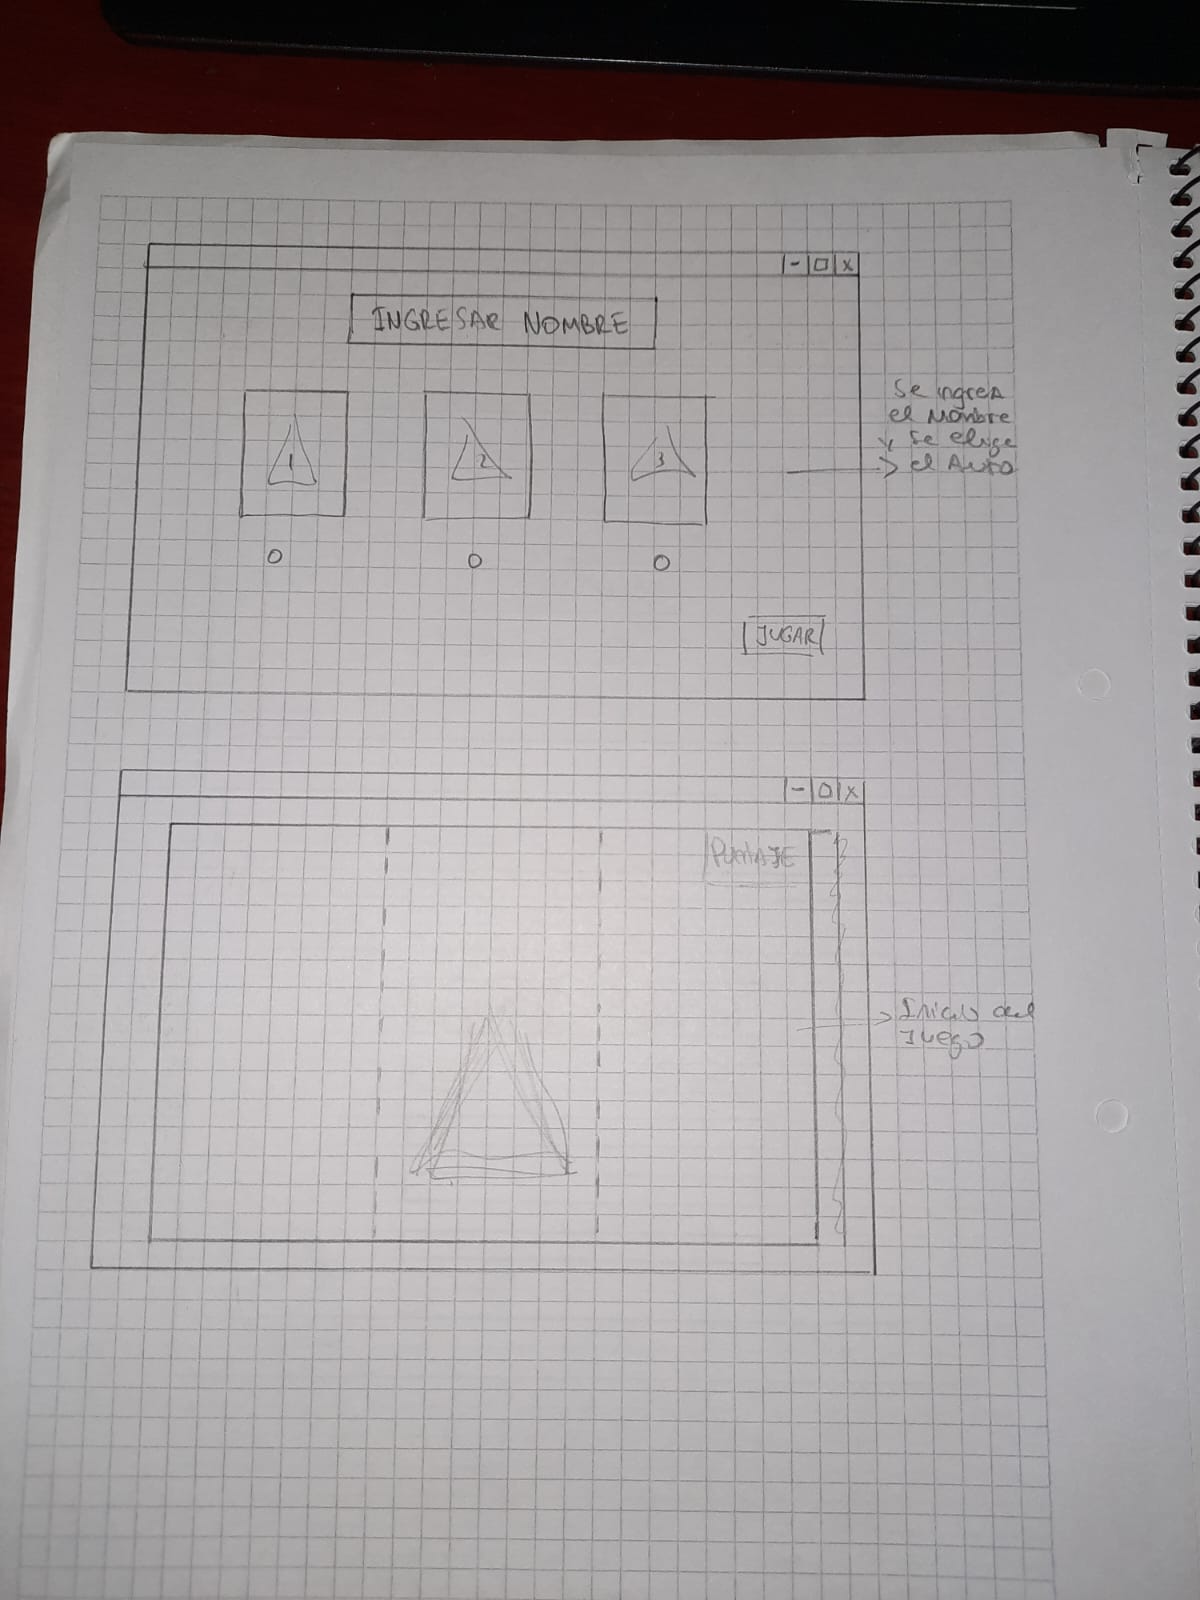 - □ x
INGRESAR NOMBRE
1 2 3
Se ingresa
el Nombre
y se elige
el Auto
JUGAR
- □ x
PUNTAJE
Inicio del
Juego